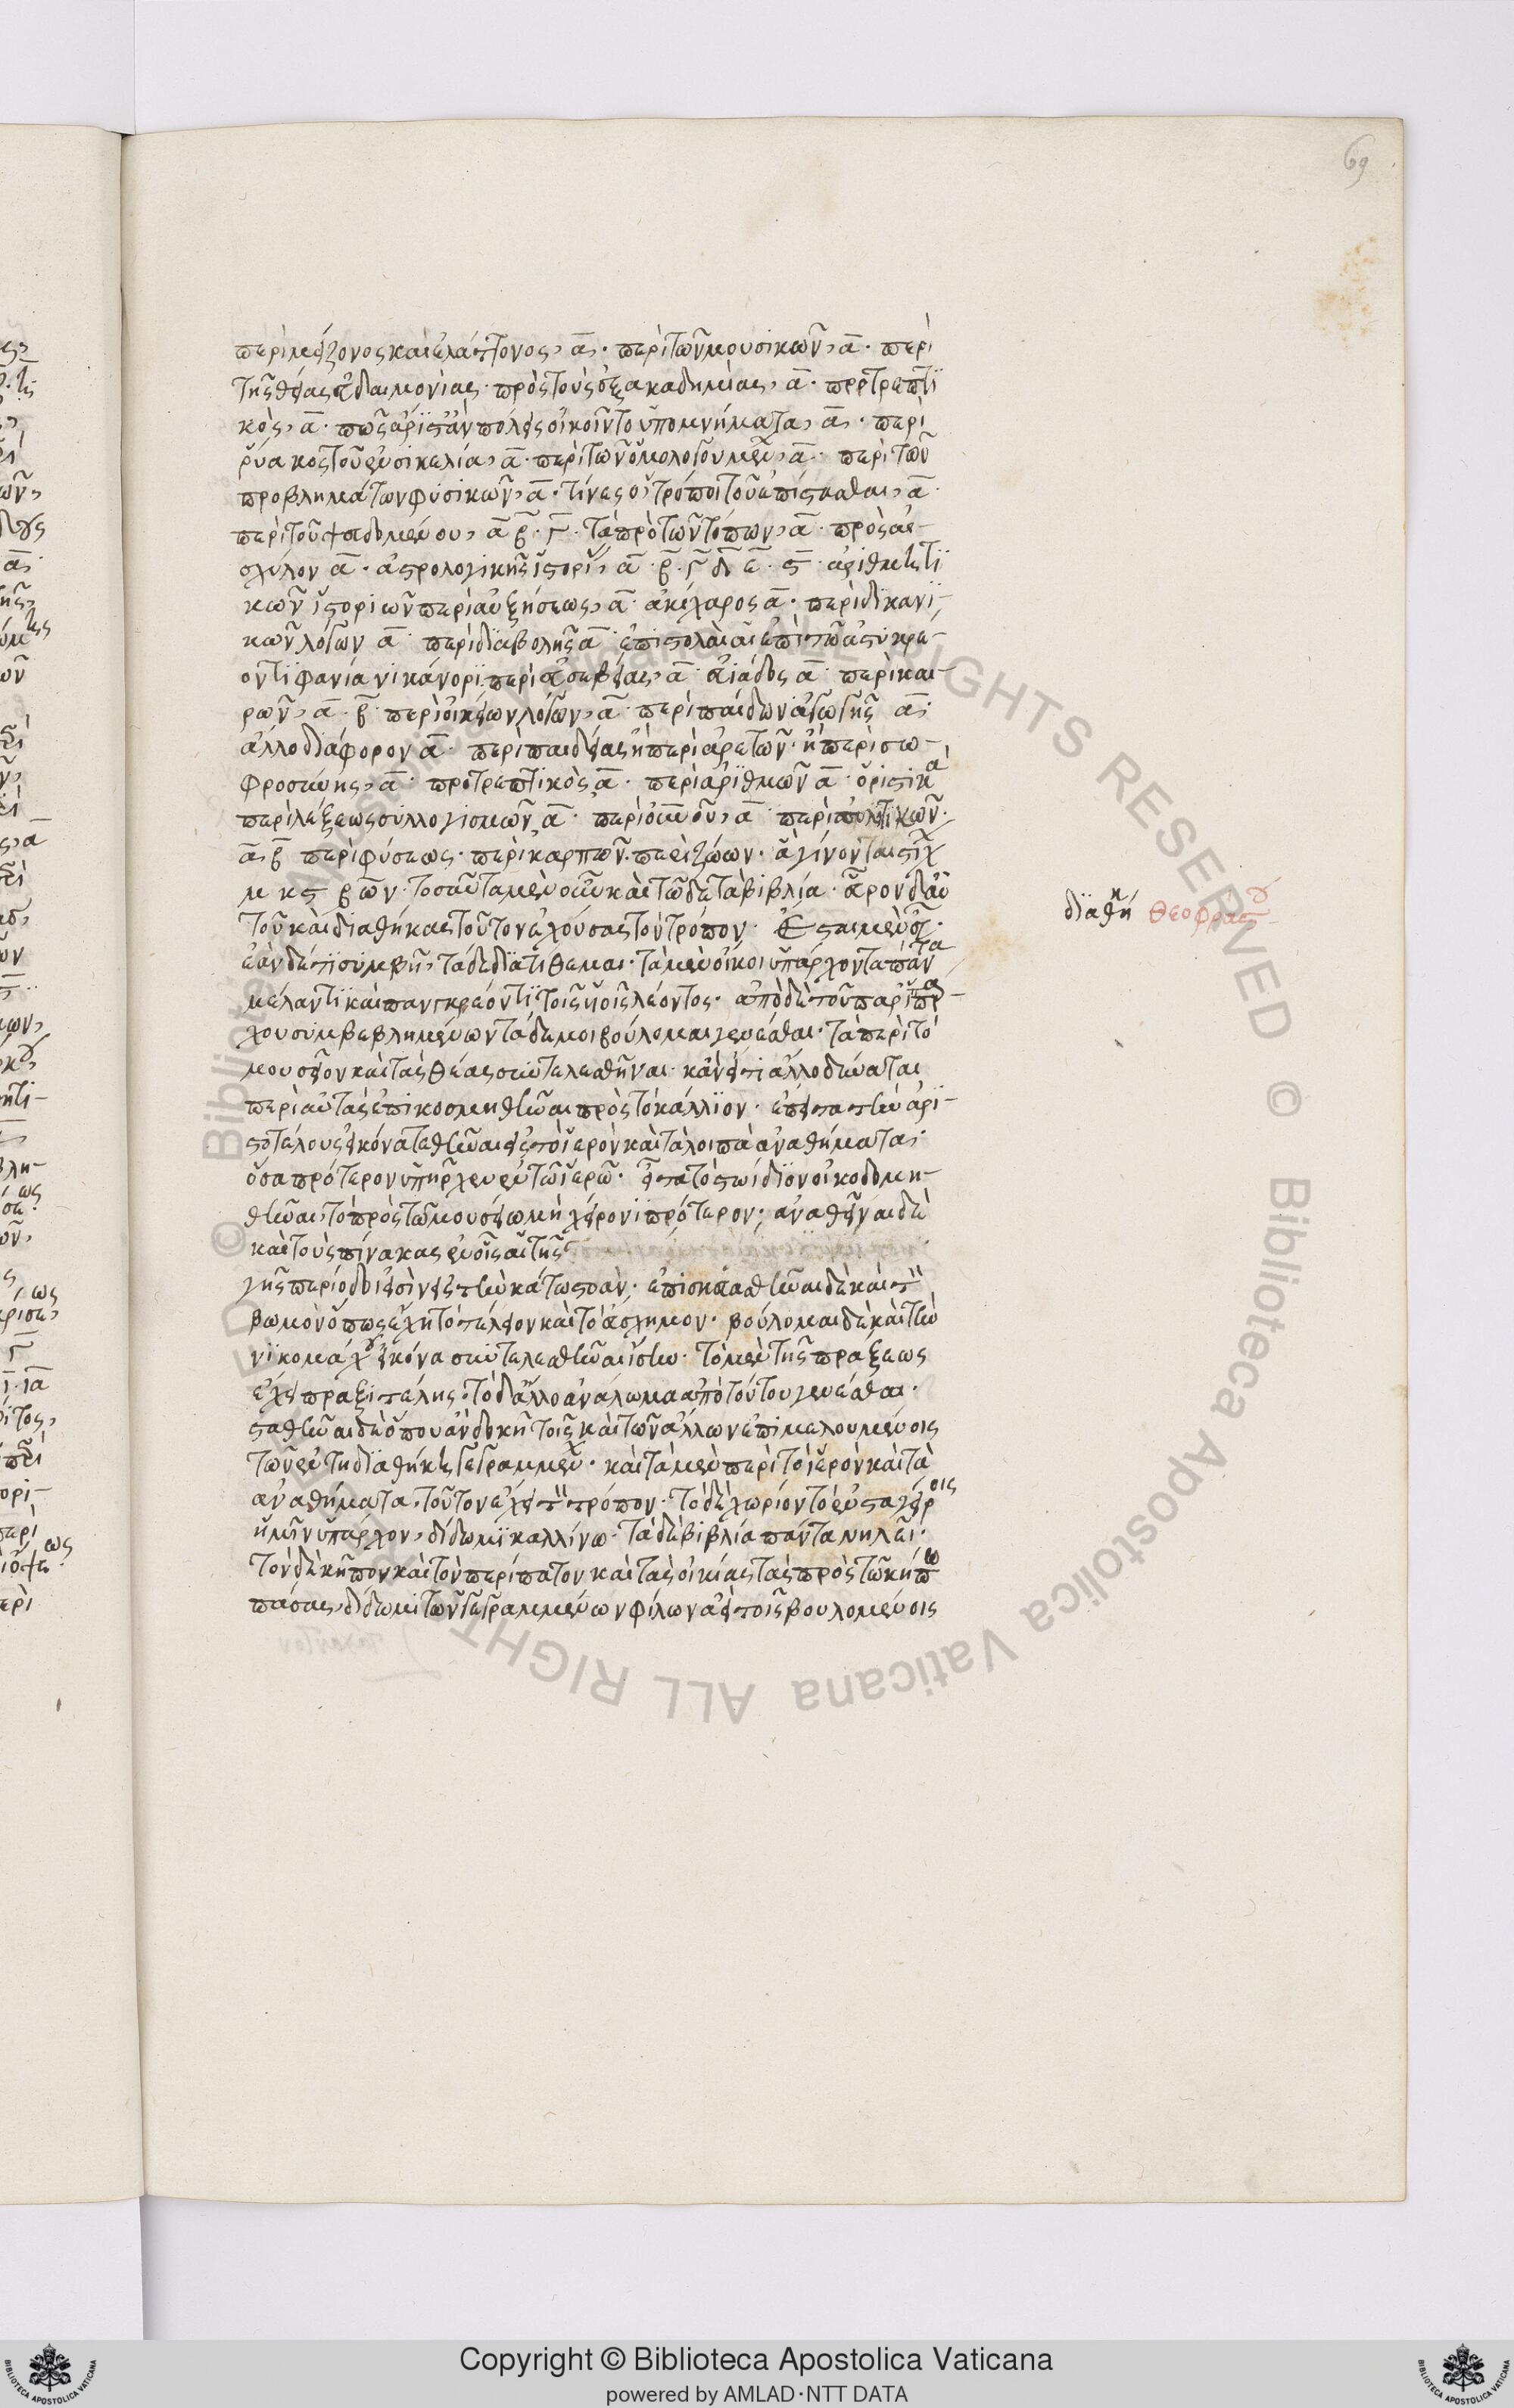 69
περὶ μείζονος καὶ ἐλάττονος, α̅. περὶ τῶν μουσικῶν, α̅. περὶ
τῆς θείας εὐδαιμονίας. πρὸς τοὺς ἐξ ακαδημίας, α̅. προτρεπτϊ
κὸς, α̅. πῶς ἄριστ' ἂν πόλεις οἰκοῖντο ὑπομνήματα, α̅. περὶ
ῥύακος τοῦ ἐν σικελία, α̅. περὶ τῶν ὁμολογουμεν, α̅. περὶ τῶν
προβλημάτων φυσικῶν, α̅. τίνες οἱ τρόποι τοῦ ἐπίστασθαι, α̅.
περὶ τοῦ ψευδομένου, α̅ β̅. γ̅. τὰ πρὸ τῶν τόπων, α̅. πρὸς αἰ-
σχύλον α̅. ἀστρολογικῆς ἱστορί, α̅. β̅. γ̅ δ̅ ε̅. ς̅. ἀριθμητϊ
κῶν ἱστοριῶν περὶ αὐξήσεως, α̅. ἀκίχαρος α̅. περὶ δικανϊ-
κῶν λόγων α̅. περὶ διαβολῆς α̅. ἐπιστολαὶ αἱ ἐπὶ τῶ ἀστυκρέ-
οντϊ φανία νικάνορϊ. περὶ εὐσεβείας, α̅. εὐιάδος α̅. περὶ και-
ρῶν, α. β̅. περὶ οἰκείων λόγων, α̅. περὶ παίδων ἀγωγῆς α̅.
ἄλλο διάφορον α̅. περὶ παιδείας ἢ περὶ ἀρετῶν. ἢ περὶ σω-
φροσύνης, α̅. προτρεπτϊκὸς α̅. περὶ ἀρϊθμῶν α̅. ὁριστικὰ
περὶ λέξεως συλλογισμῶν α̅. περὶ οὐρανοῦ, α̅. περὶ πολιτικῶν.
α̅. β̅ περὶ φύσεως. περὶ καρπῶν. περὶ ζώων. ἃ γίνονται στίχ
τοσαῦτα μὲν οὖν καὶ τῶδε τὰ βιβλία. εὗρον δ' αὐ
τοῦ καὶ διαθήκας τοῦτον ἐχούσας τὸν τρόπον. Ἔσται μὲν εὖ.
ἐὰν δέ τι συμβῆ, τάδε διατίθεμαι. τὰ μὲν οἴκοι ὑπάρχοντα πάντα
μελαντϊ καὶ πανγκρέοντϊ τοῖς υἱοῖς λέοντος. ἀπὸ δὲ τοῦ παρ' ἱππάρ-
χου συμβεβλημένων τάδε μοι βούλομαι γενέσθαι. τὰ περὶ τὸ
μουσεῖον καὶ τὰς θεὰς συντελεσθῆναι. κἂν εἴ τι ἄλλο δύναται
περὶ αὐτὰς ἐπικοσμηθῆναι πρὸς τὸ κάλλϊον. ἔπειτα τὴν ἀρϊ-
στοτέλους εἰκόνα τεθῆναι εἰς τὸ ἱερὸν καὶ τὰ λοιπὰ ἀναθήματα.
ὅσα πρότερον ὑπῆρχεν ἐν τῶ ἱερῶ. εἶτα τὸ στωίδιον οἰκοδομη-
θῆναι τὸ πρὸς τῶ μουσείω μὴ χεῖρον ἢ πρότερον. ἀναθεῖναι δὲ
καὶ τοὺς πίνακας ἐν οἷς αἱ τῆς
γῆς περίοδοί εἰσὶν εἰς τὴν κάτω στοὰν. ἐπισκευασθῆναι δὲ καὶ τὸν
βωμὸν ὅπως ἔχη τὸ τέλειον καὶ τὸ εὔσχημον. βούλομαι δὲ καὶ τὴν
νϊκομάχου εἰκόνα συντελεσθῆναι ἴσην. τὸ μὲν τῆς πράξεως
ἔχει πραξιτέλης. τὸ δ' ἄλλο ἀνάλωμα ἀπὸ τούτου γενέσθαι.
σταθῆναι δὲ ὅπου ἂν δοκῆ τοῖς καὶ τῶν ἄλλων ἐπιμελουμένοις
τῶν ἐν τῆ διαθήκη γεγραμμέν. καὶ τὰ μὲν περὶ τὸ ἱερὸν καὶ τὰ
ἀναθήματα, τοῦτον ἐχέτω τὸν τρόπον. τὸ δὲ χωρίον τὸ ἐν σταγείροις
ἡμῖν ὑπάρχον, δίδωμϊ καλλίνω. τὰ δὲ βιβλία πάντα νηλεῖ.
τὸν δὲ κῆπον καὶ τὸν περίπατον καὶ τὰς οἰκίας τὰς πρὸς τῶ κήπω
πάσας, δίδωμι τῶν γεγραμμένων φίλων ἀεὶ τοῖς βουλομένοις
διαθήκη Θεοφράστου
© Biblioteca Apostolica Vaticana ALL RIGHTS RESERVED © Biblioteca Apostolica Vaticana ALL RIGHTS RESERVED
Copyright © Biblioteca Apostolica Vaticana
powered by AMLAD·NTT DATA
BIBLIOTECA APOSTOLICA VATICANA
BIBLIOTECA APOSTOLICA VATICANA